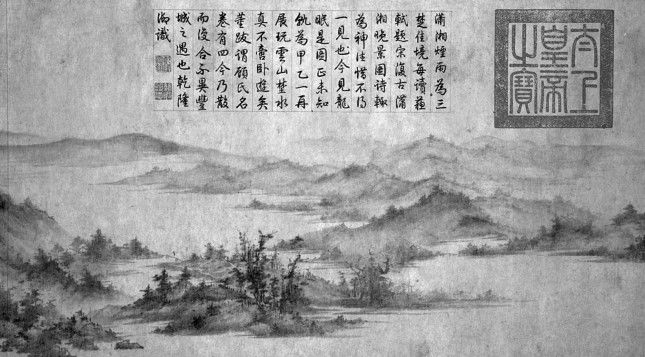 瀟湘煙雨為三
楚佳境每讀蘇
軾題宋復古瀟
湘晚景圖詩輒
為神往惜不得
一見也今見龍
眠是圖正未知
孰為甲乙一再
展玩雲山楚水
真不啻臥遊矣
董跋謂顧氏名
卷有四今乃散
而復合亦異豐
城之遇也乾隆
御識
太上
皇帝
之寶